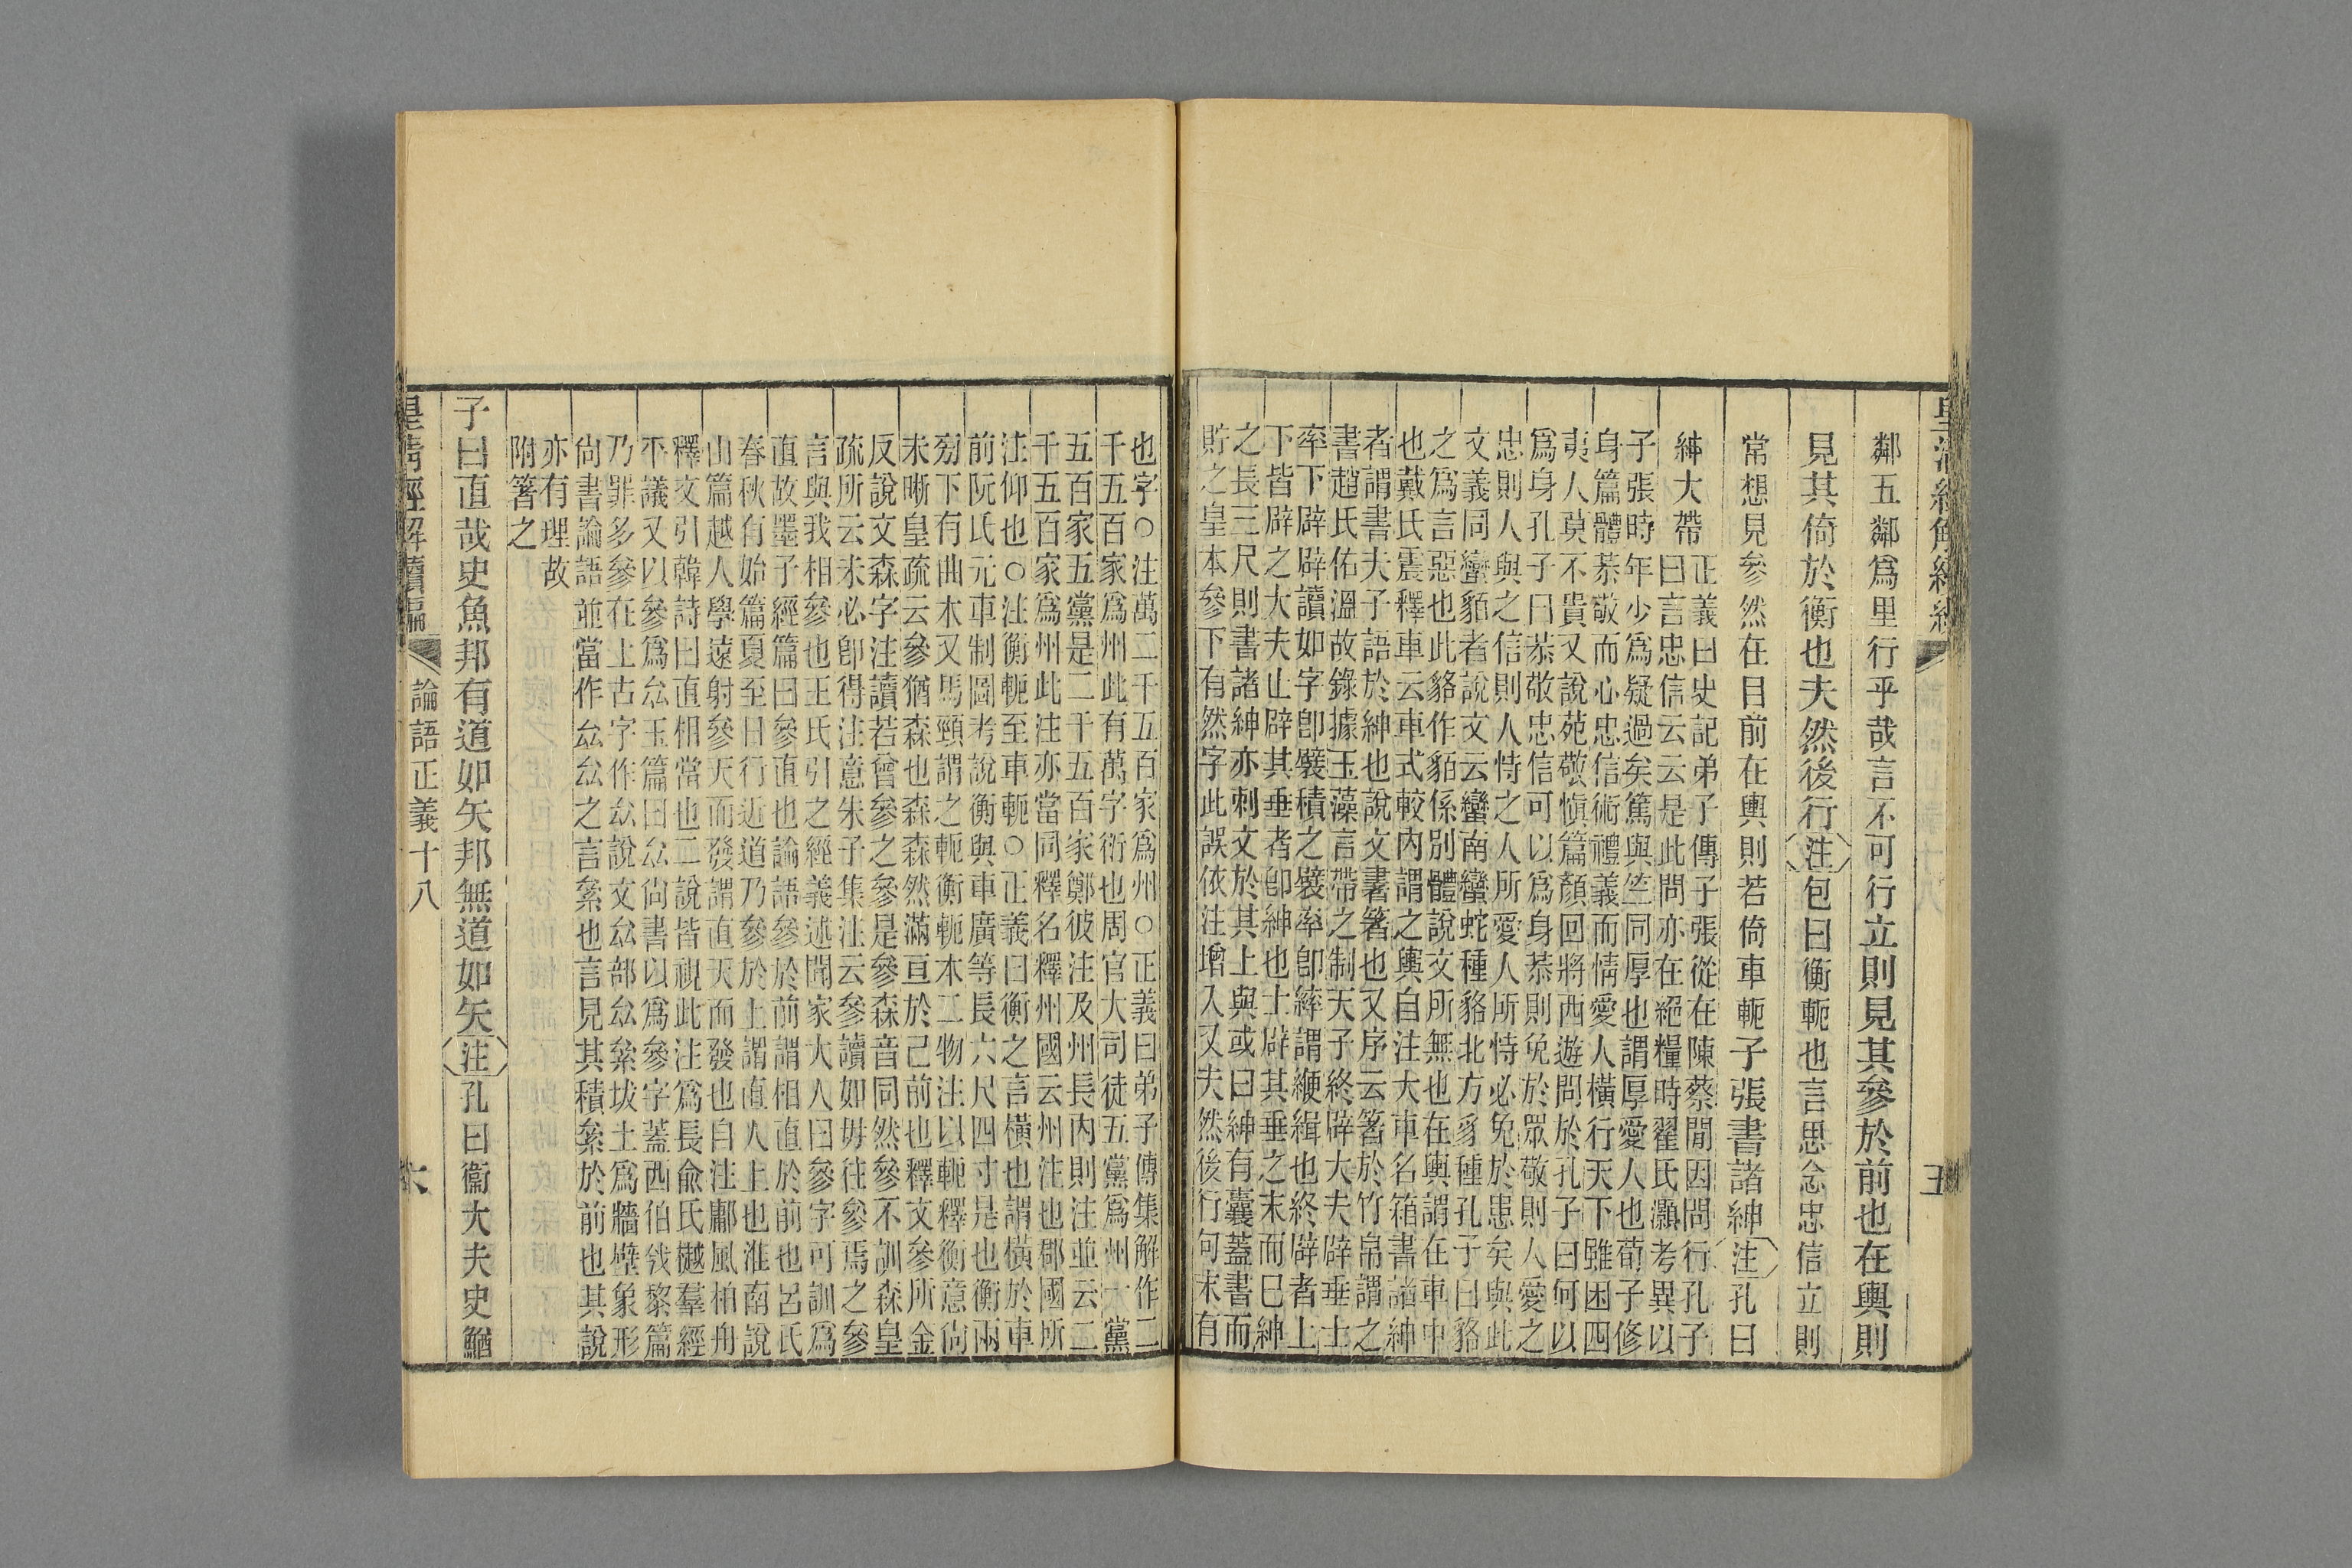 鄰五鄰爲里行乎哉言不可行立則見其參於前也在輿則
見其倚於衡也夫然後行注包曰衡軛也言思念忠信立則
常想見參然在目前在輿則若倚車軛子張書諸紳注孔曰
紳大帶
正義曰史記弟子傳子張從在陳蔡閒因問行孔子
曰言忠信云云是此問亦在絕糧時翟氏灝考異以
子張時年少爲疑過矣篤與竺同厚也謂厚愛人也荀子修
身篇體恭敬而心忠信術禮義而情愛人橫行天下雖困四
夷人莫不貴又說苑敬愼篇顏回將西遊問於孔子曰何以
爲身孔子曰恭敬忠信可以爲身恭則免於眾敬則人愛之
忠則人與之信則人恃之人所愛人所恃必免於患矣與此
文義同蠻貊者說文云蠻南蠻蛇種貉北方豸種孔子曰貉
之爲言惡也此貉作貊係別體說文所無也在輿謂在車中
也戴氏震釋車云車式較內謂之輿自注大車名箱書諸紳
者謂書夫子語於紳也說文書箸也又序云箸於竹帛謂之
書趙氏佑溫故錄據玉藻言帶之制天子終辟大夫辟垂士
率下辟辟讀如字卽襞積之襞率卽繂謂緶緝也終辟者上
下皆辟之大夫止辟其垂者卽紳也士辟其垂之末而已紳
之長三尺則書諸紳亦刺文於其上與或曰紳有囊蓋書而
貯之皇本參下有然字此誤依注增入又夫然後行句末有
也字○注萬二千五百家爲州○正義曰弟子傳集解作二
千五百家爲州此有萬字衍也周官大司徒五黨爲州一黨
五百家五黨是二千五百家鄭彼注及州長內則注並云二
千五百家爲州此注亦當同釋名釋州國云州注也郡國所
注仰也○注衡軛至車軛○正義曰衡之言橫也謂橫於車
前阮氏元車制圖考說衡與車廣等長六尺四寸是也衡兩
旁下有曲木又馬頸謂之軛衡軛本二物注以軛釋衡意尙
未晰皇疏云參猶森也森森然滿亘於己前也釋文參所金
反說文森字注讀若曾參之參是參森音同然參不訓森皇
疏所云未必卽得注意朱子集注云參讀如毋往參焉之參
言與我相參也王氏引之經義述聞家大人曰參字可訓爲
直故墨子經篇曰參直也論語參於前謂相直於前也呂氏
春秋有始篇夏至日行近道乃參於上謂直人上也淮南說
山篇越人學遠射參天而發謂直天而發也自注鄘風柏舟
釋文引韓詩曰直相當也二說皆視此注爲長俞氏樾羣經
平議又以參爲厽玉篇曰厽尙書以爲參字蓋西伯戡黎篇
乃罪多參在上古字作厽說文厽部厽絫坺土爲牆壁象形
尙書論語並當作厽厽之言絫也言見其積絫於前也其說
亦有理故
附箸之
子曰直哉史魚邦有道如矢邦無道如矢注孔曰衞大夫史鰌
皇清經解續編 論語正義十八 六